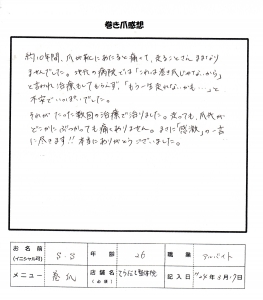 巻き爪感想
約10年間、爪が靴にあたると痛って、走ることさえままなり
ませんでした。地元の病院では「これは巻き爪じゃないから」
と言われ治療もしてもらえず、「もう一生走れないかも…」と
不安でいっぱいでした。
それが たった数回の治療で治りました。走っても、爪先が
どこかにぶつかっても痛くありません。まさに「感激」の一言
に尽きます!! 本当にありがとうございました。
お名前
(イニシャル可)
S.S
年齢
26
職業
アルバイト
メニュー
巻爪
店舗名
(必須)
てらだ整体院
記入日